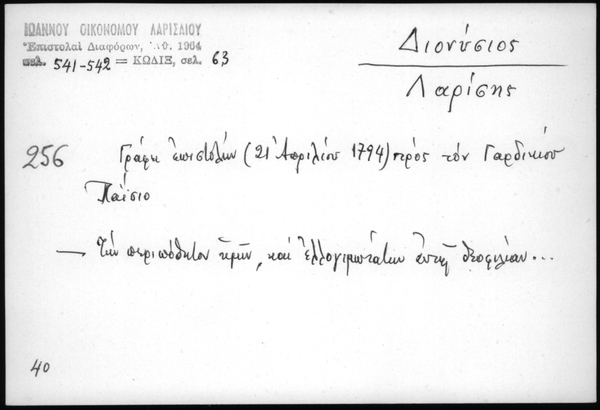 ΙΩΑΝΝΟΥ ΟΙΚΟΝΟΜΟΥ ΛΑΡΙΣΑΙΟΥ
Ἐπιστολαὶ Διαφόρων, Ἀθ. 1964
σελ. 541-542 = ΚΩΔΙΞ, σελ. 63
Διονύσιος
Λαρίσης
256
Γράφει ἐπιστολὴν (21 Ἀπριλίου 1794) πρὸς τὸν Γαρδικίου
Παΐσιο
— Τὴν περιπόθητον ἡμῖν, καὶ ἐλλογιμωτάτην θεοφιλίαν...
40